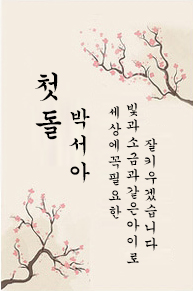 첫돌
박서아
세상에 꼭 필요한
빛과 소금과 같은 아이로
잘 키우겠습니다